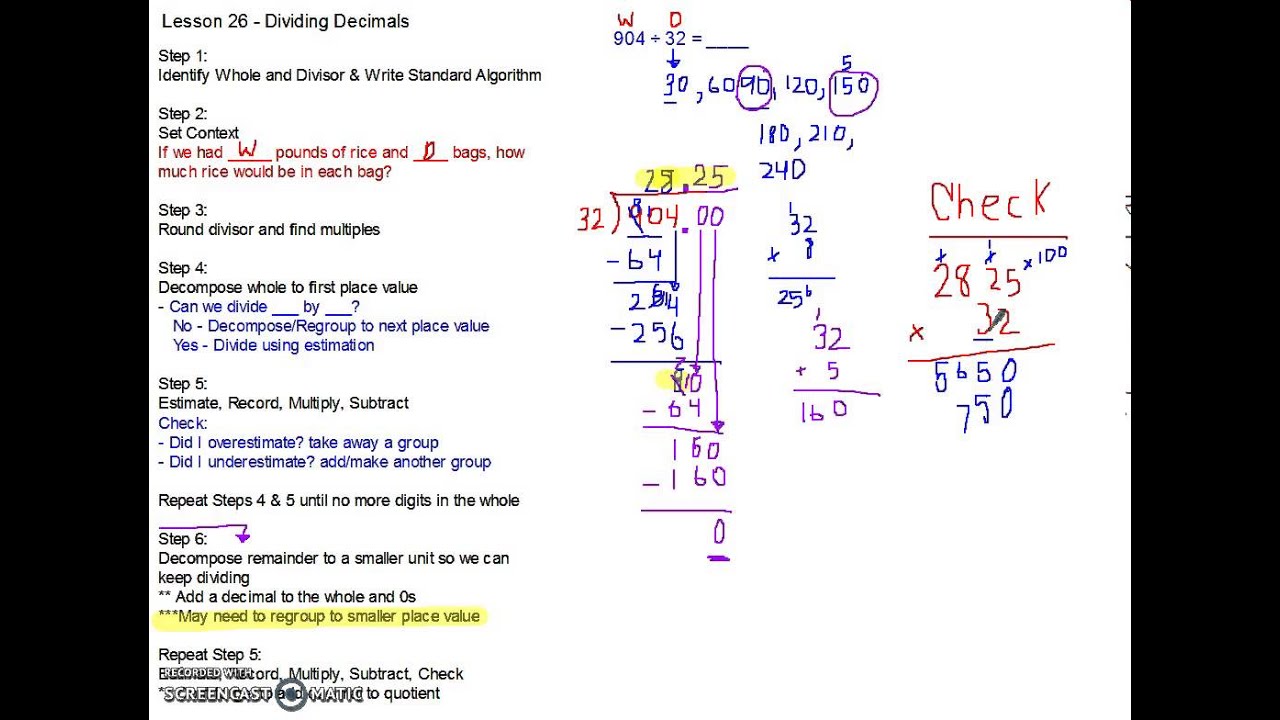 Lesson 26 - Dividing Decimals
Step 1:
Identify Whole and Divisor & Write Standard Algorithm
Step 2:
Set Context
If we had W pounds of rice and D bags, how
much rice would be in each bag?
Step 3:
Round divisor and find multiples
Step 4:
Decompose whole to first place value
- Can we divide ___ by ___?
No - Decompose/Regroup to next place value
Yes - Divide using estimation
Step 5:
Estimate, Record, Multiply, Subtract
Check:
- Did I overestimate? take away a group
- Did I underestimate? add/make another group
Repeat Steps 4 & 5 until no more digits in the whole
Step 6:
Decompose remainder to a smaller unit so we can
keep dividing
** Add a decimal to the whole and 0s
***May need to regroup to smaller place value
Repeat Step 5:
Record, Multiply, Subtract, Check
to quotient
RECORDED WITH
SCREENCAST MATIC
W D
904 ÷ 32 = ____
5
30, 60 90, 120, 150
180, 210,
240
.25
32 ) 904.00
- 64
- 256
- 64
160
- 160
0
1
32
x 8
256
1
32
x 5
160
Check
2825 x100
x 32
5650
750